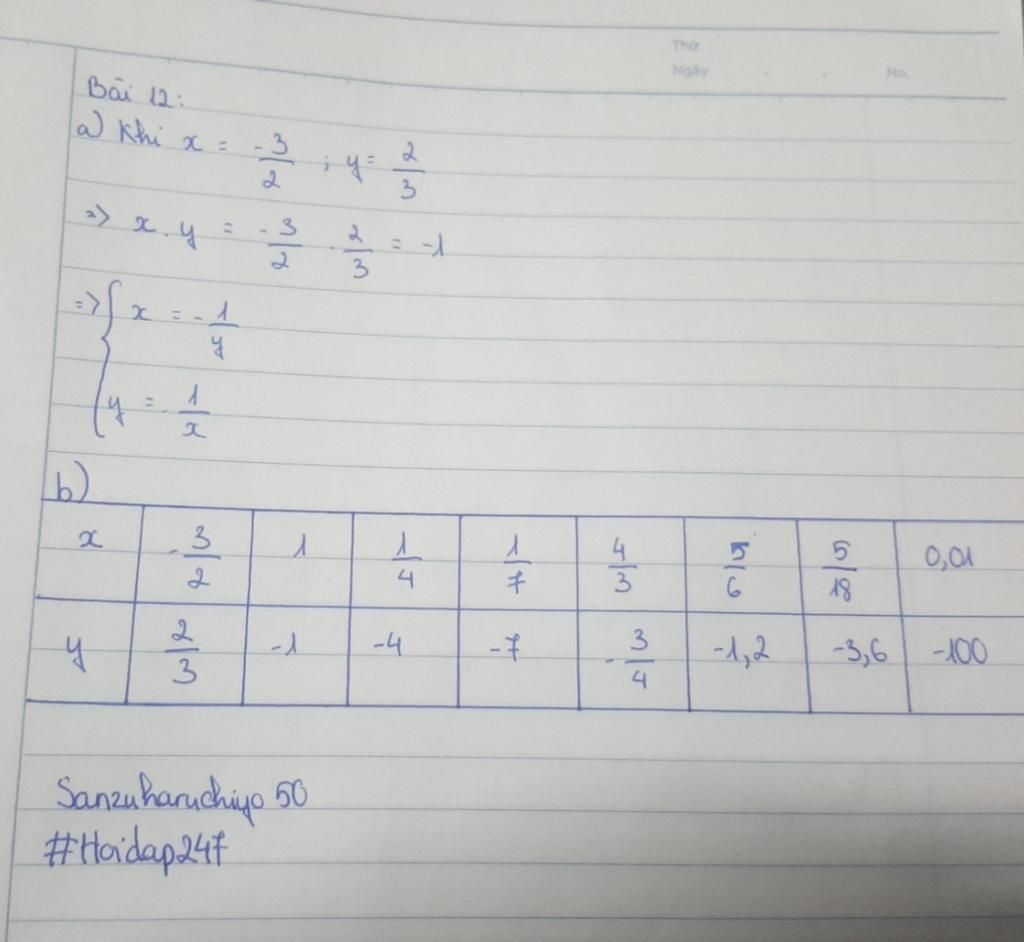 Thứ
Ngày . . No.
Bài 12:
a) Khi x = -3/2 ; y = 2/3
=> x . y = -3/2 . 2/3 = -1
=> { x = - 1/y
y = - 1/x
b)
x | -3/2 | 1 | 1/4 | 1/7 | 4/3 | 5/6 | 5/18 | 0,01
y | 2/3 | -1 | -4 | -7 | -3/4 | -1,2 | -3,6 | -100
Sanzuharuchiyo 50
#Hoidap247